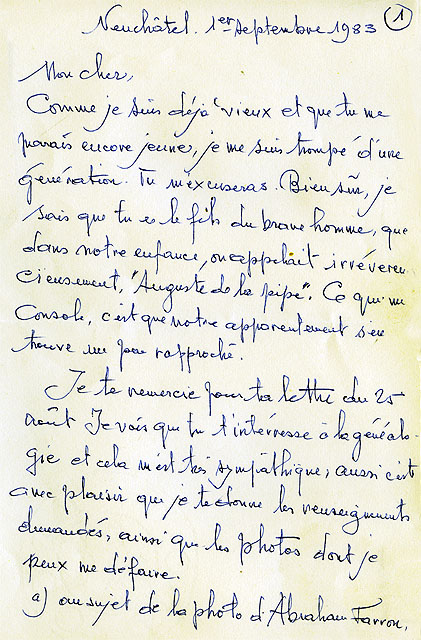 Neuchâtel. 1er Septembre 1983 1
Mon cher,
Comme je suis déjà vieux et que tu me
parais encore jeune, je me suis trompé d'une
génération. Tu m'excuseras. Bien sûr, je
sais que tu es le fils du brave homme, que
dans notre enfance, on appelait irréveren
cieusement, "Auguste de la pipe". Ce qui me
console, c'est que notre apparentement s'en
trouve un peu rapproché.
Je te remercie pour ta lettre du 25
août. Je vois que tu t'intéresse à la généalo-
gie et cela m'est très sympathique, aussi c'est
avec plaisir que je te donne les renseignments
demandés, ainsi que les photos dont je
peux me défaire.
a) au sujet de la photo d'Abraham Farron,